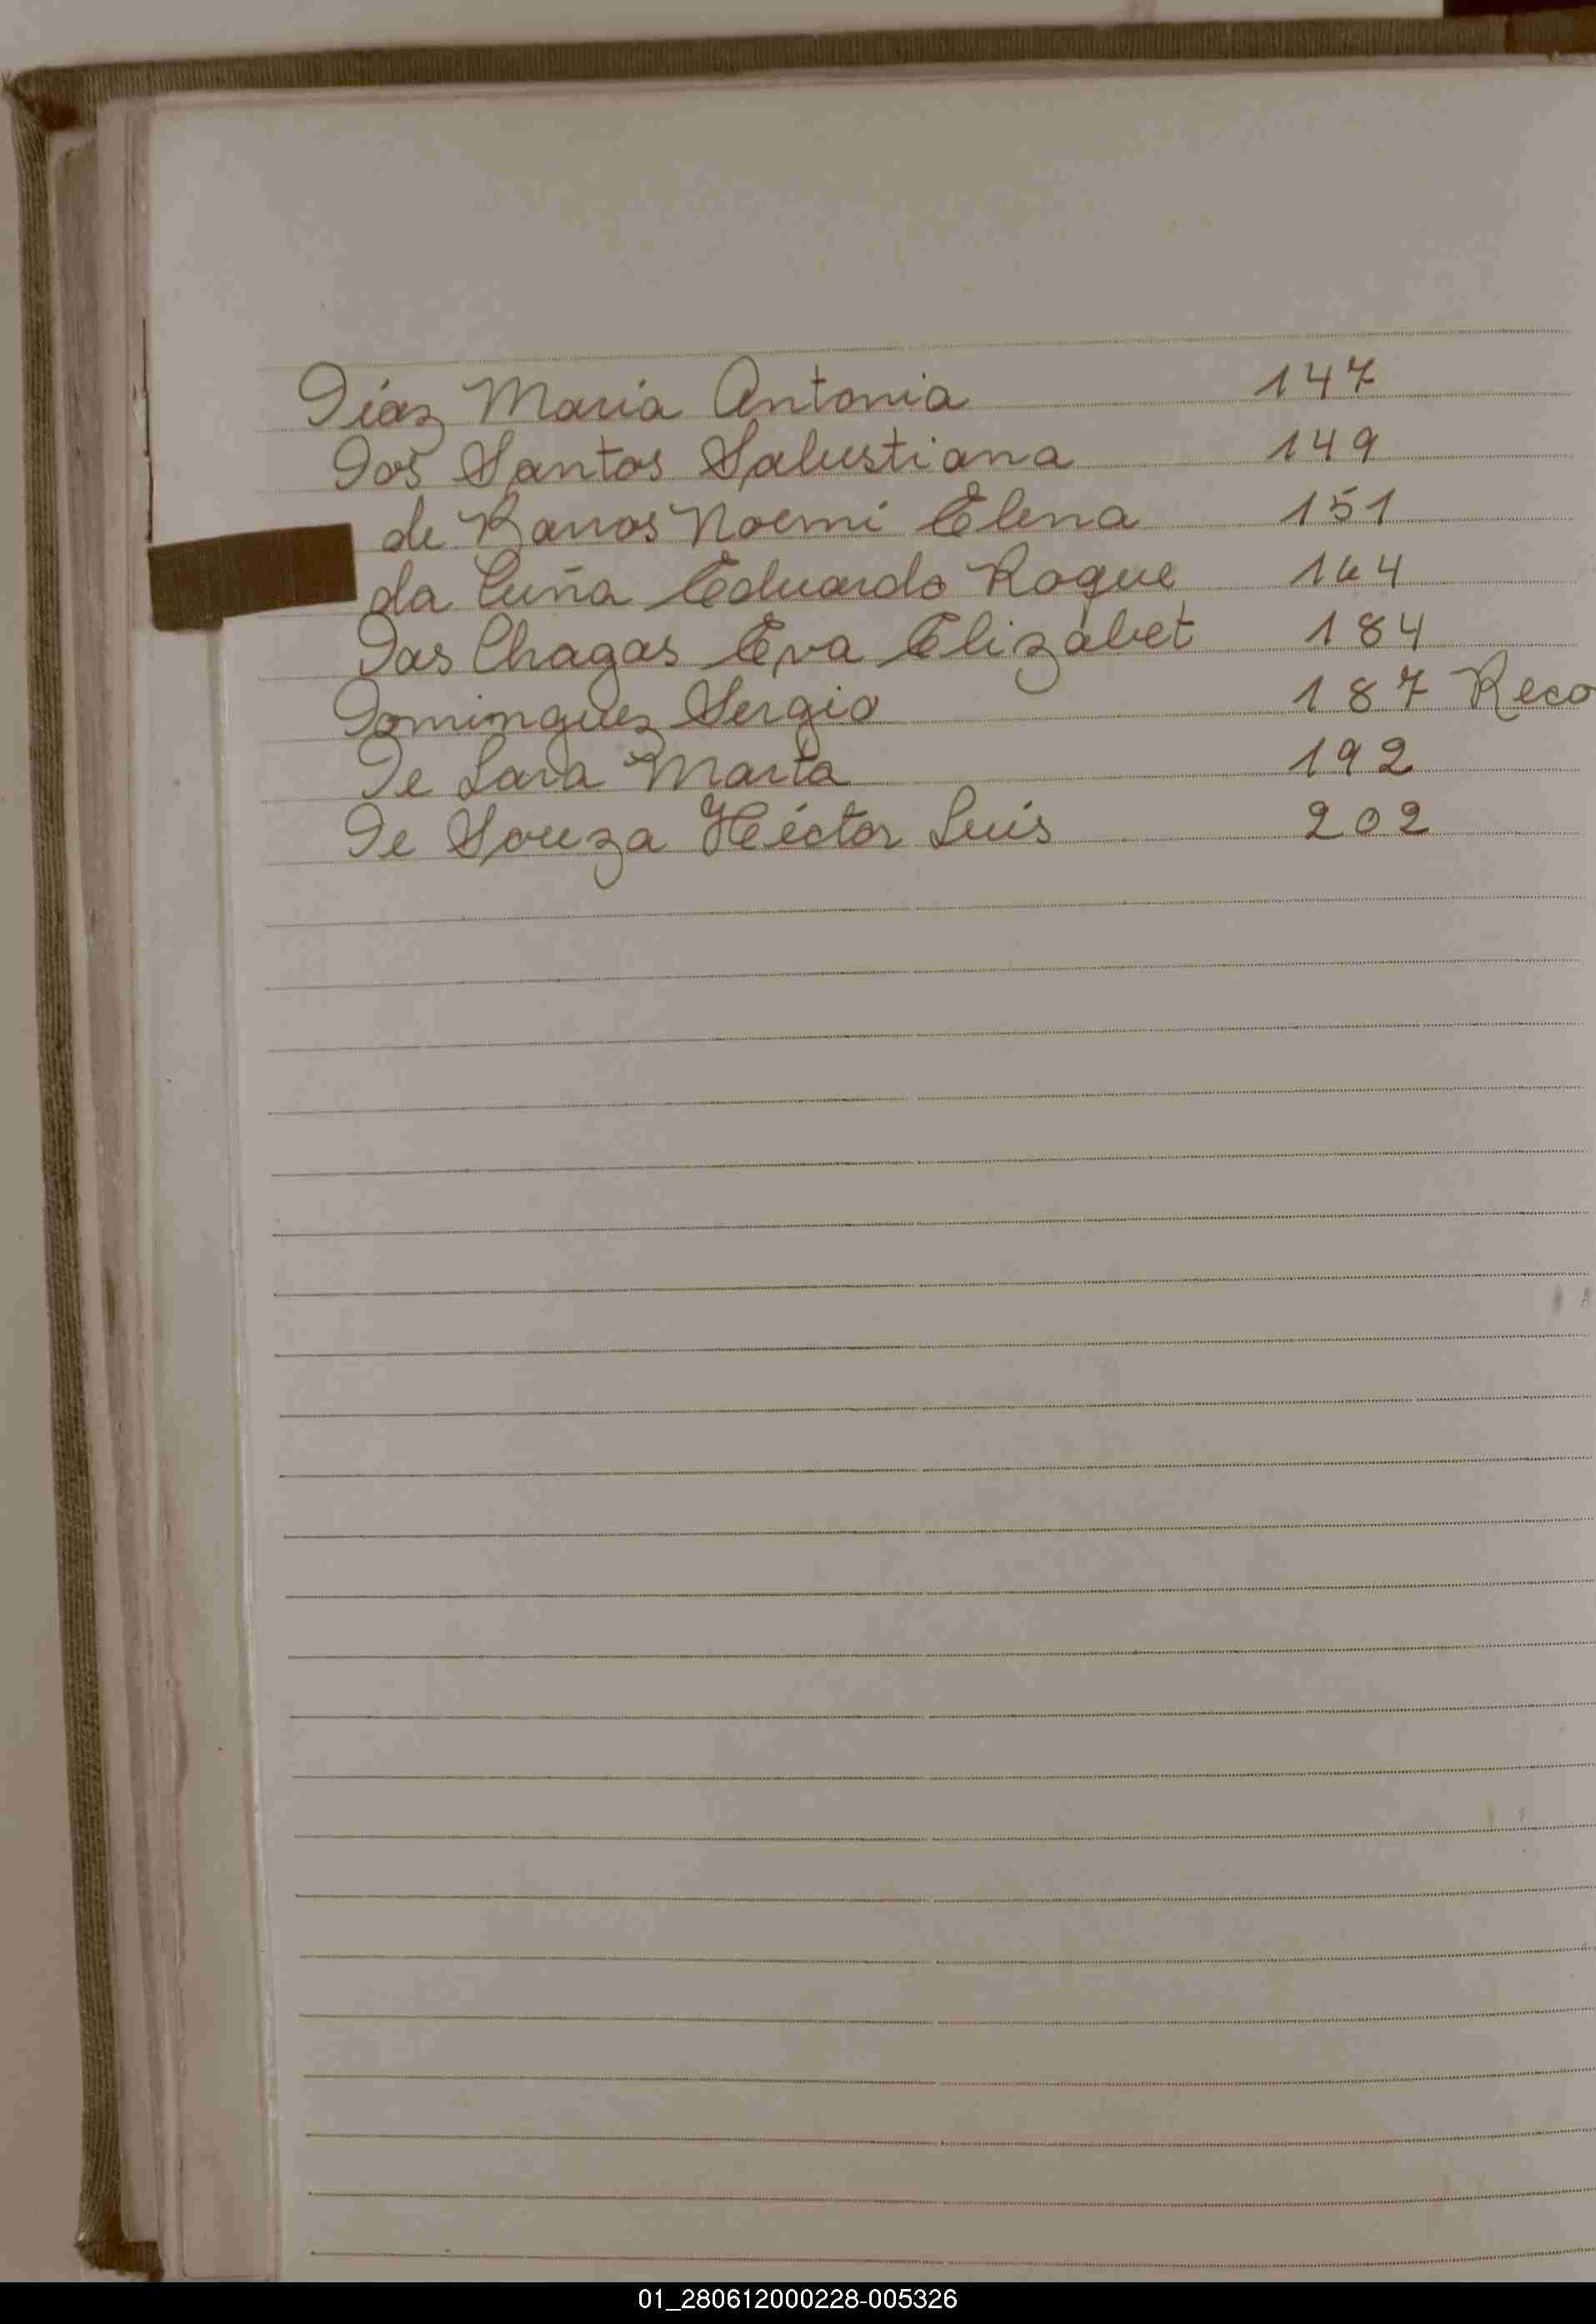 Diaz Maria Antonia 147
Dos Santos Salustiana 149
de Ramos Noemi Elena 151
da Cuña Eduardo Roque 164
Das Chagas Eva Elizabet 184
Dominguez Sergio 187 Reco
De Lara Marta 192
De Souza Héctor Luis 202
01_280612000228-005326